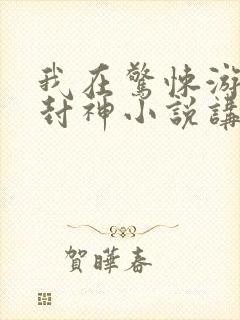 我在驚悚游
封神小說講
賀曄春